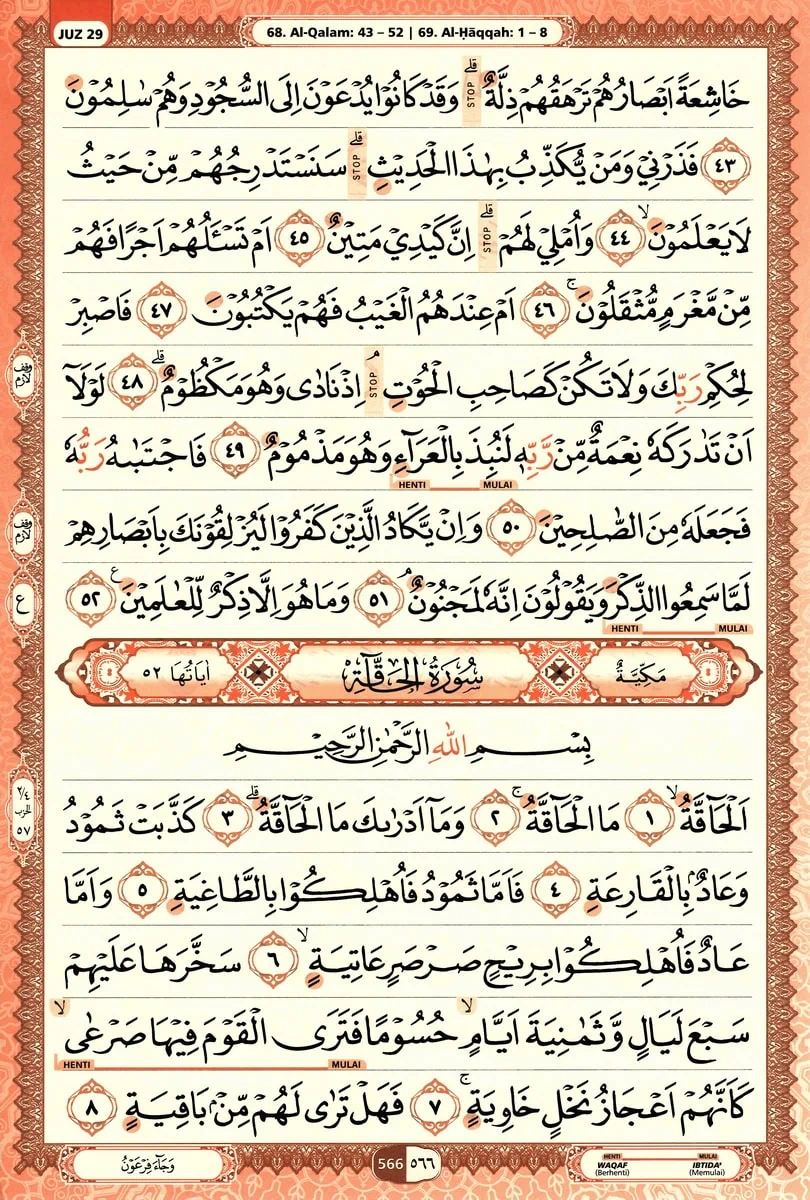 JUZ 29
68. Al-Qalam: 43 – 52 | 69. Al-Ḥāqqah: 1 – 8
خَاشِعَةً اَبْصَارُهُمْ تَرْهَقُهُمْ ذِلَّةٌ ۗ STOP وَقَدْ كَانُوْا يُدْعَوْنَ اِلَى السُّجُوْدِ وَهُمْ سٰلِمُوْنَ
٤٣ فَذَرْنِيْ وَمَنْ يُّكَذِّبُ بِهٰذَا الْحَدِيْثِ ۗ STOP سَنَسْتَدْرِجُهُمْ مِّنْ حَيْثُ
لَا يَعْلَمُوْنَ ۙ ٤٤ وَاُمْلِيْ لَهُمْ ۗ STOP اِنَّ كَيْدِيْ مَتِيْنٌ ٤٥ اَمْ تَسْـَٔلُهُمْ اَجْرًا فَهُمْ
مِّنْ مَّغْرَمٍ مُّثْقَلُوْنَ ۚ ٤٦ اَمْ عِنْدَهُمُ الْغَيْبُ فَهُمْ يَكْتُبُوْنَ ٤٧ فَاصْبِرْ
لِحُكْمِ رَبِّكَ وَلَا تَكُنْ كَصَاحِبِ الْحُوْتِ ۘ STOP اِذْ نَادٰى وَهُوَ مَكْظُوْمٌ ۗ ٤٨ لَوْلَآ
اَنْ تَدٰرَكَهٗ نِعْمَةٌ مِّنْ رَّبِّهٖ لَنُبِذَ بِالْعَرَاۤءِ وَهُوَ مَذْمُوْمٌ ٤٩ فَاجْتَبٰىهُ رَبُّهٗ
HENTI MULAI
فَجَعَلَهٗ مِنَ الصّٰلِحِيْنَ ٥٠ وَاِنْ يَّكَادُ الَّذِيْنَ كَفَرُوْا لَيُزْلِقُوْنَكَ بِاَبْصَارِهِمْ
لَمَّا سَمِعُوا الذِّكْرَ وَيَقُوْلُوْنَ اِنَّهٗ لَمَجْنُوْنٌ ۘ ٥١ وَمَا هُوَ اِلَّا ذِكْرٌ لِّلْعٰلَمِيْنَ ࣖ ٥٢
HENTI MULAI
مَكِّيَّةٌ سُوْرَةُ الْحَاۤقَّةِ اٰيَاتُهَا ٥٢
بِسْمِ اللّٰهِ الرَّحْمٰنِ الرَّحِيْمِ
اَلْحَاۤقَّةُ ۙ ١ مَا الْحَاۤقَّةُ ۚ ٢ وَمَآ اَدْرٰىكَ مَا الْحَاۤقَّةُ ۗ ٣ كَذَّبَتْ ثَمُوْدُ
وَعَادٌ ۢبِالْقَارِعَةِ ٤ فَاَمَّا ثَمُوْدُ فَاُهْلِكُوْا بِالطَّاغِيَةِ ٥ وَاَمَّا
عَادٌ فَاُهْلِكُوْا بِرِيْحٍ صَرْصَرٍ عَاتِيَةٍ ۙ ٦ سَخَّرَهَا عَلَيْهِمْ
سَبْعَ لَيَالٍ وَّثَمٰنِيَةَ اَيَّامٍ ۙ حُسُوْمًا فَتَرَى الْقَوْمَ فِيْهَا صَرْعٰى ۙ
HENTI MULAI
كَاَنَّهُمْ اَعْجَازُ نَخْلٍ خَاوِيَةٍ ۚ ٧ فَهَلْ تَرٰى لَهُمْ مِّنْۢ بَاقِيَةٍ ٨
وقف لازم
وقف لازم
ع
٢/٤ الحزب ٥٧
وَجَاۤءَ فِرْعَوْنُ
566 ٥٦٦
HENTI MULAI
WAQAF IBTIDA'
(Berhenti) (Memulai)